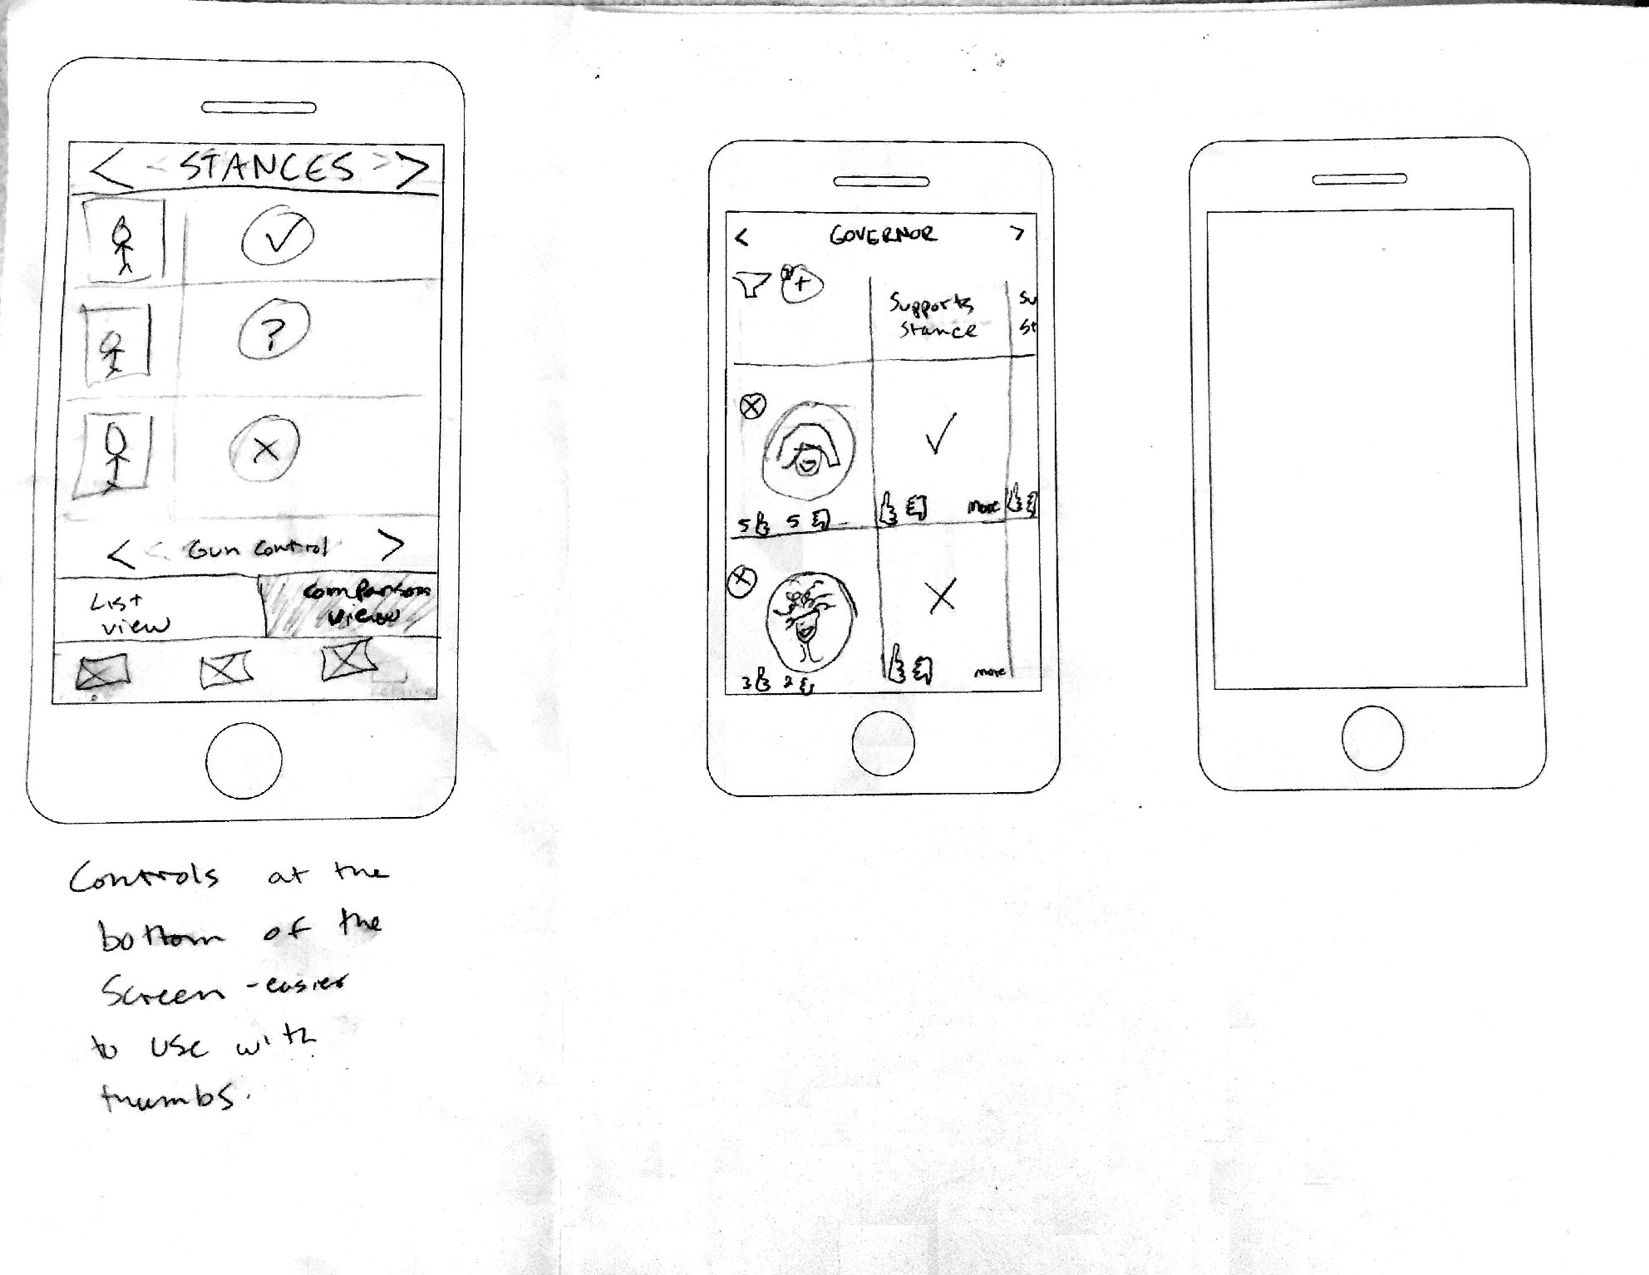 < STANCES >
?
< Gun Control >
List
view
Comparison
view
Controls at the
bottom of the
Screen - easier
to use with
thumbs.
< GOVERNOR >
+
Supports
Stance
Su
St
5 5
more
3 2
more